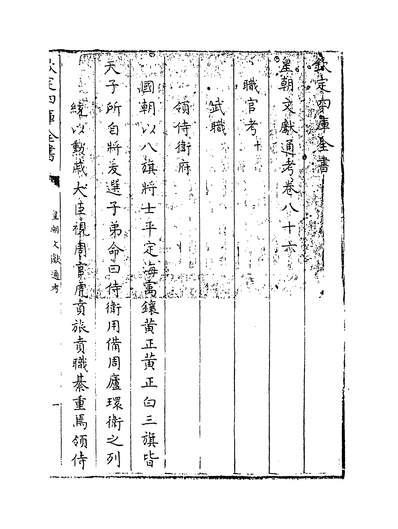 欽定四庫全書
皇朝文獻通考卷八十六
職官考十
武職
領侍衛府
國朝以八旗將士平定海寓鑲黃正黃正白三旗皆
天子所自將爰選子弟命曰侍衛用備周廬環衛之列
統以勲戚大臣視周官虎賁旅賁職綦重焉領侍
欽定四庫全書
皇朝文獻通考
一